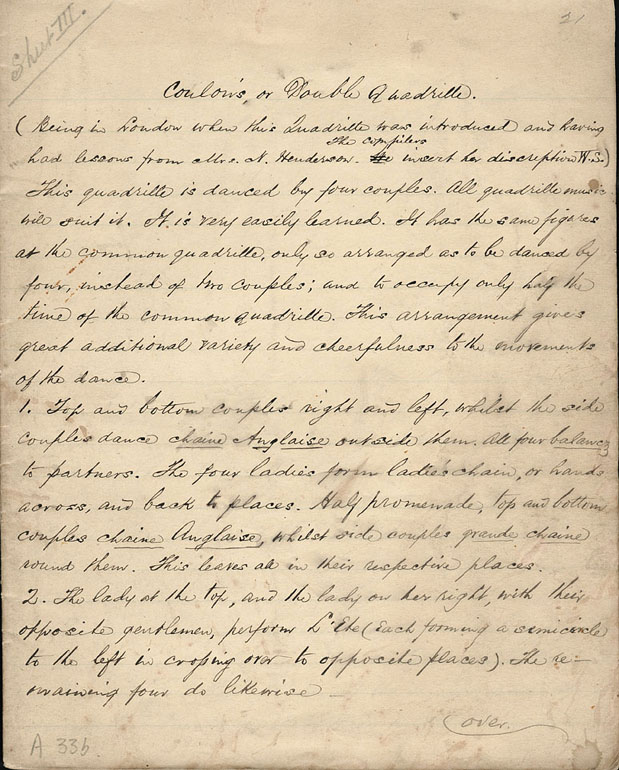 Shut III.
21
Coulon's, or Double Quadrille.
(Being in London when this Quadrille was introduced and having
The compilers
had lessons from Mrs. N. Henderson. insert her discription W.S.)
This quadrille is danced by four couples. All quadrille music
will suit it. It is very easily learned. It has the same figures
at the common quadrille, only so arranged as to be danced by
four, instead of two couples; and to occupy only half the
time of the common quadrille. This arrangement gives
great additional variety and cheerfulness to the movements
of the dance.
1. Top and bottom couples right and left, whilst the side
couples dance chaine Anglaise outside them. All four balancez
to partners. The four ladies form ladies chain, or hands
across, and back to places. Half promenade, top and bottom
couples chaine Anglaise, whilst side couples grande chaine
round them. This leaves all in their respective places.
2. The lady at the top, and the lady on her right, with their
opposite gentlemen, perform L'Ete (Each forming a semicircle
to the left in crossing over to opposite places). The re-
maining four do likewise
(over.
A 33b.